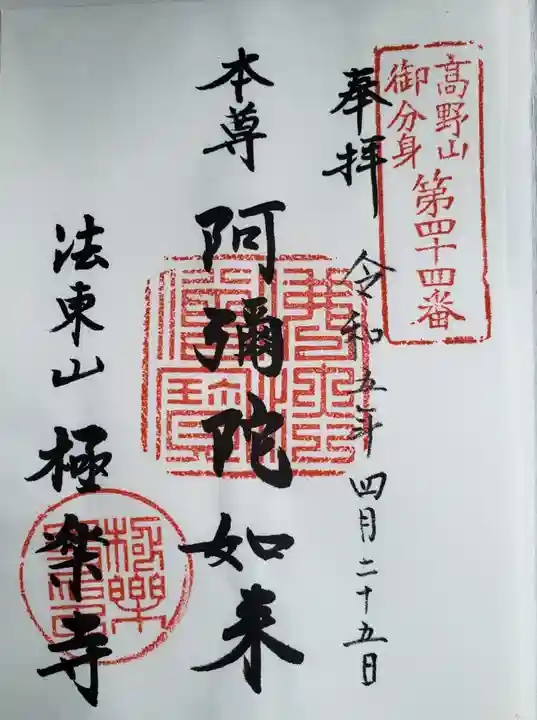 高野山
御分身
第四十四番
奉拝 令和五年四月二十五日
本尊 阿彌陀如来
法東山 極楽寺